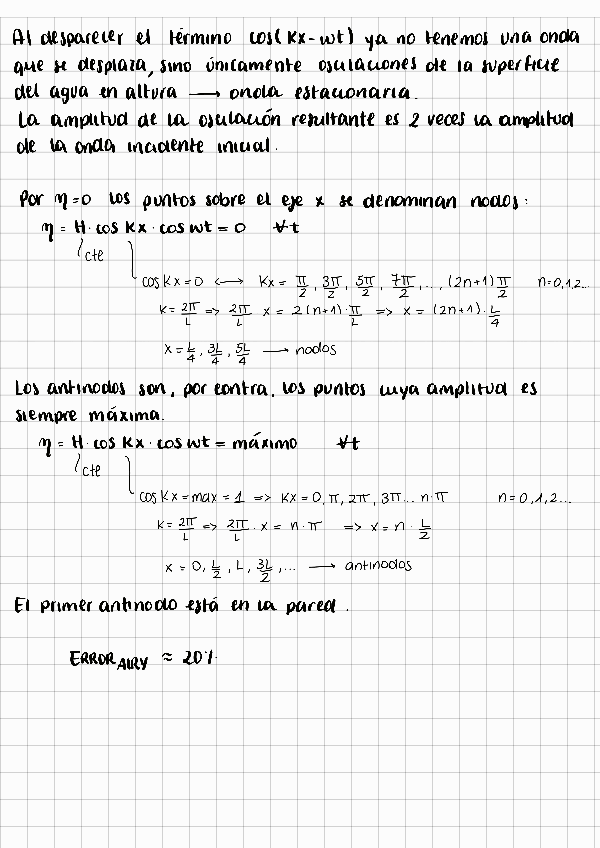 Al desparecer el término cos(Kx-wt) ya no tenemos una onda
que se desplaza, sino únicamente osculaciones de la superficie
del agua en altura → onda estacionaria.
La amplitud de la osculación resultante es 2 veces la amplitud
de la onda incidente inicial.
Por η=0 los puntos sobre el eje x se denominan nodos:
η = H·cos Kx·cos wt = 0 ∀t
cte
cos Kx=0 ⟷ Kx = π/2, 3π/2, 5π/2, 7π/2, ..., (2n+1)π/2 n=0,1,2...
K = 2π/L => 2π/L x = 2(n+1)·π/L => x = (2n+1)·L/4
x = L/4, 3L/4, 5L/4 → nodos
Los antinodos son, por contra, los puntos cuya amplitud es
siempre máxima.
η = H·cos Kx·cos wt = máximo ∀t
cte
cos Kx = max = 1 => Kx = 0, π, 2π, 3π... n·π n=0,1,2...
K = 2π/L => 2π/L · x = n·π => x = n·L/2
x = 0, L/2, L, 3L/2, ... → antinodos
El primer antinodo está en la pared.
ERROR AIRY ≈ 20%